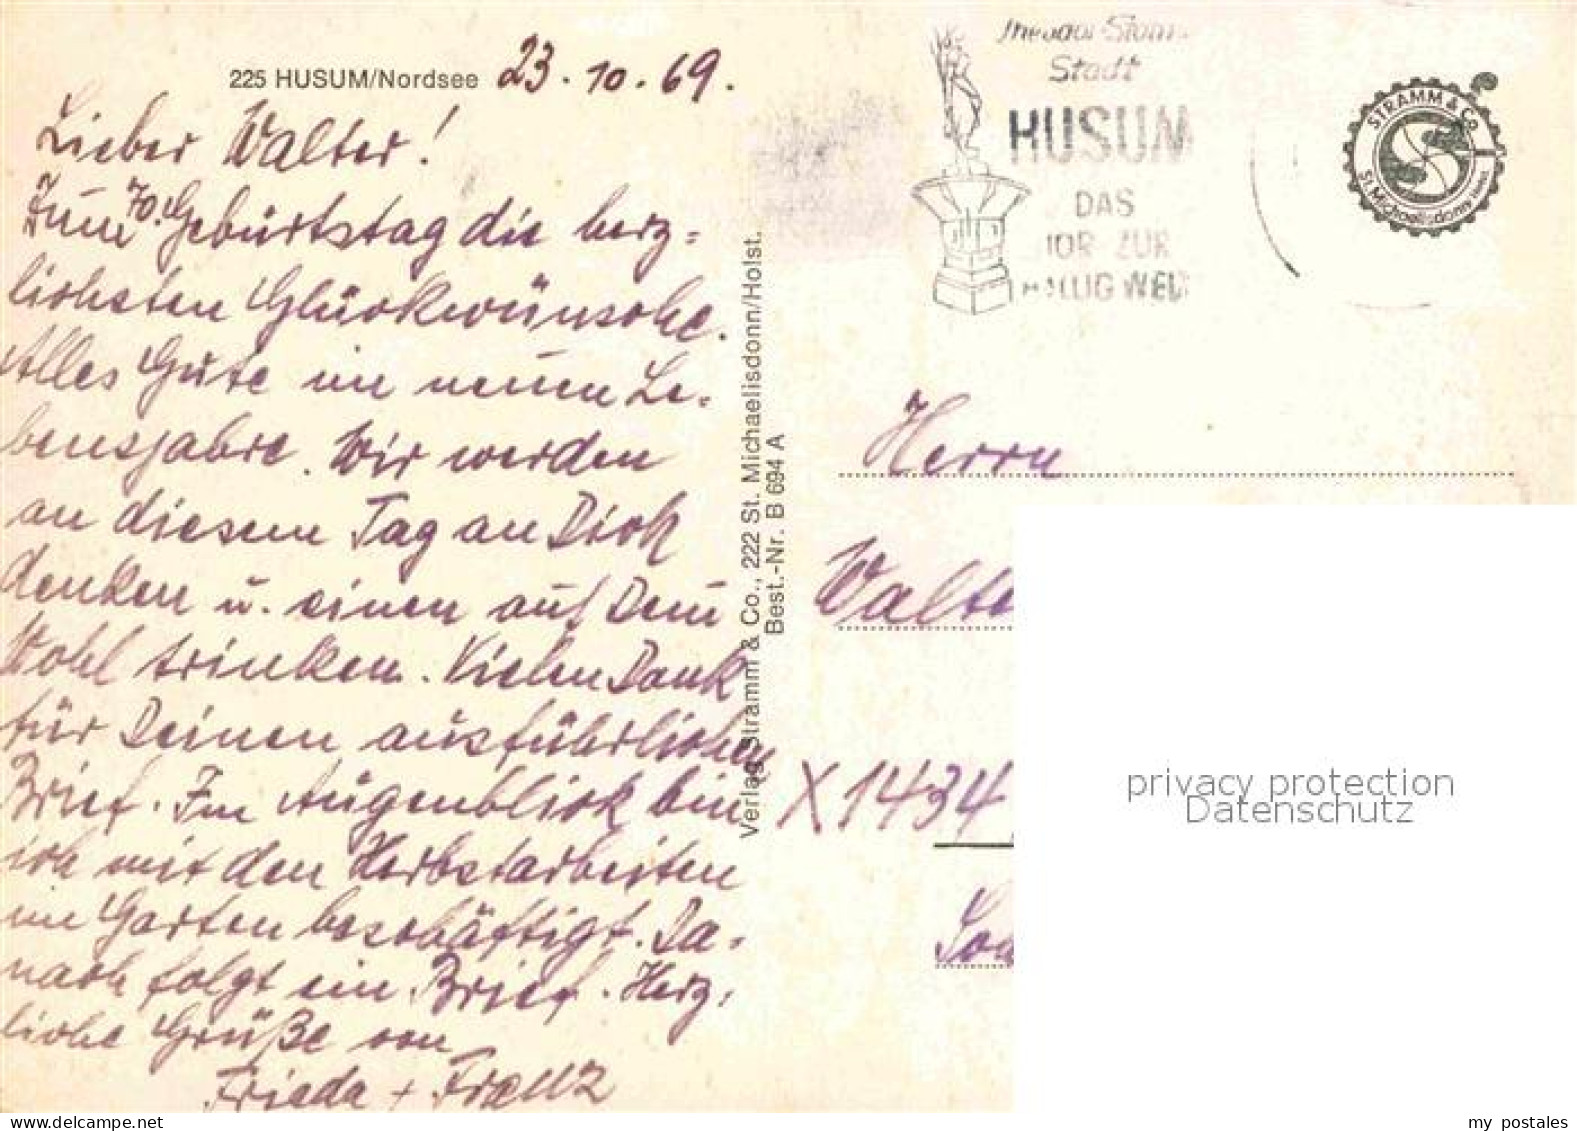 225 HUSUM/Nordsee 23.10.69.
Lieber Walter!
Zum 70. Geburtstag die herz=
lichsten Glückwünsche.
Alles Gute im neuen Le=
bensjahre. Wir werden
an diesem Tag an Dich
denken u. einen auf Dein
Wohl trinken. Vielen Dank
für Deinen ausführlichen
Brief. Im Augenblick bin
ich mit den Herbstarbeiten
im Garten beschäftigt. Da=
nach folgt ein Brief. Herz=
liche Grüße von
Frieda + Franz
Verlag Stramm & Co., 222 St. Michaelisdonn/Holst.
Best.-Nr. B 694 A
Stadt
HUSUM
DAS
TOR ZUR
HALLIG WELT
STRAMM & Co.
St. Michaelisdonn
Herrn
Walte
X 1434
privacy protection
Datenschutz
my postales